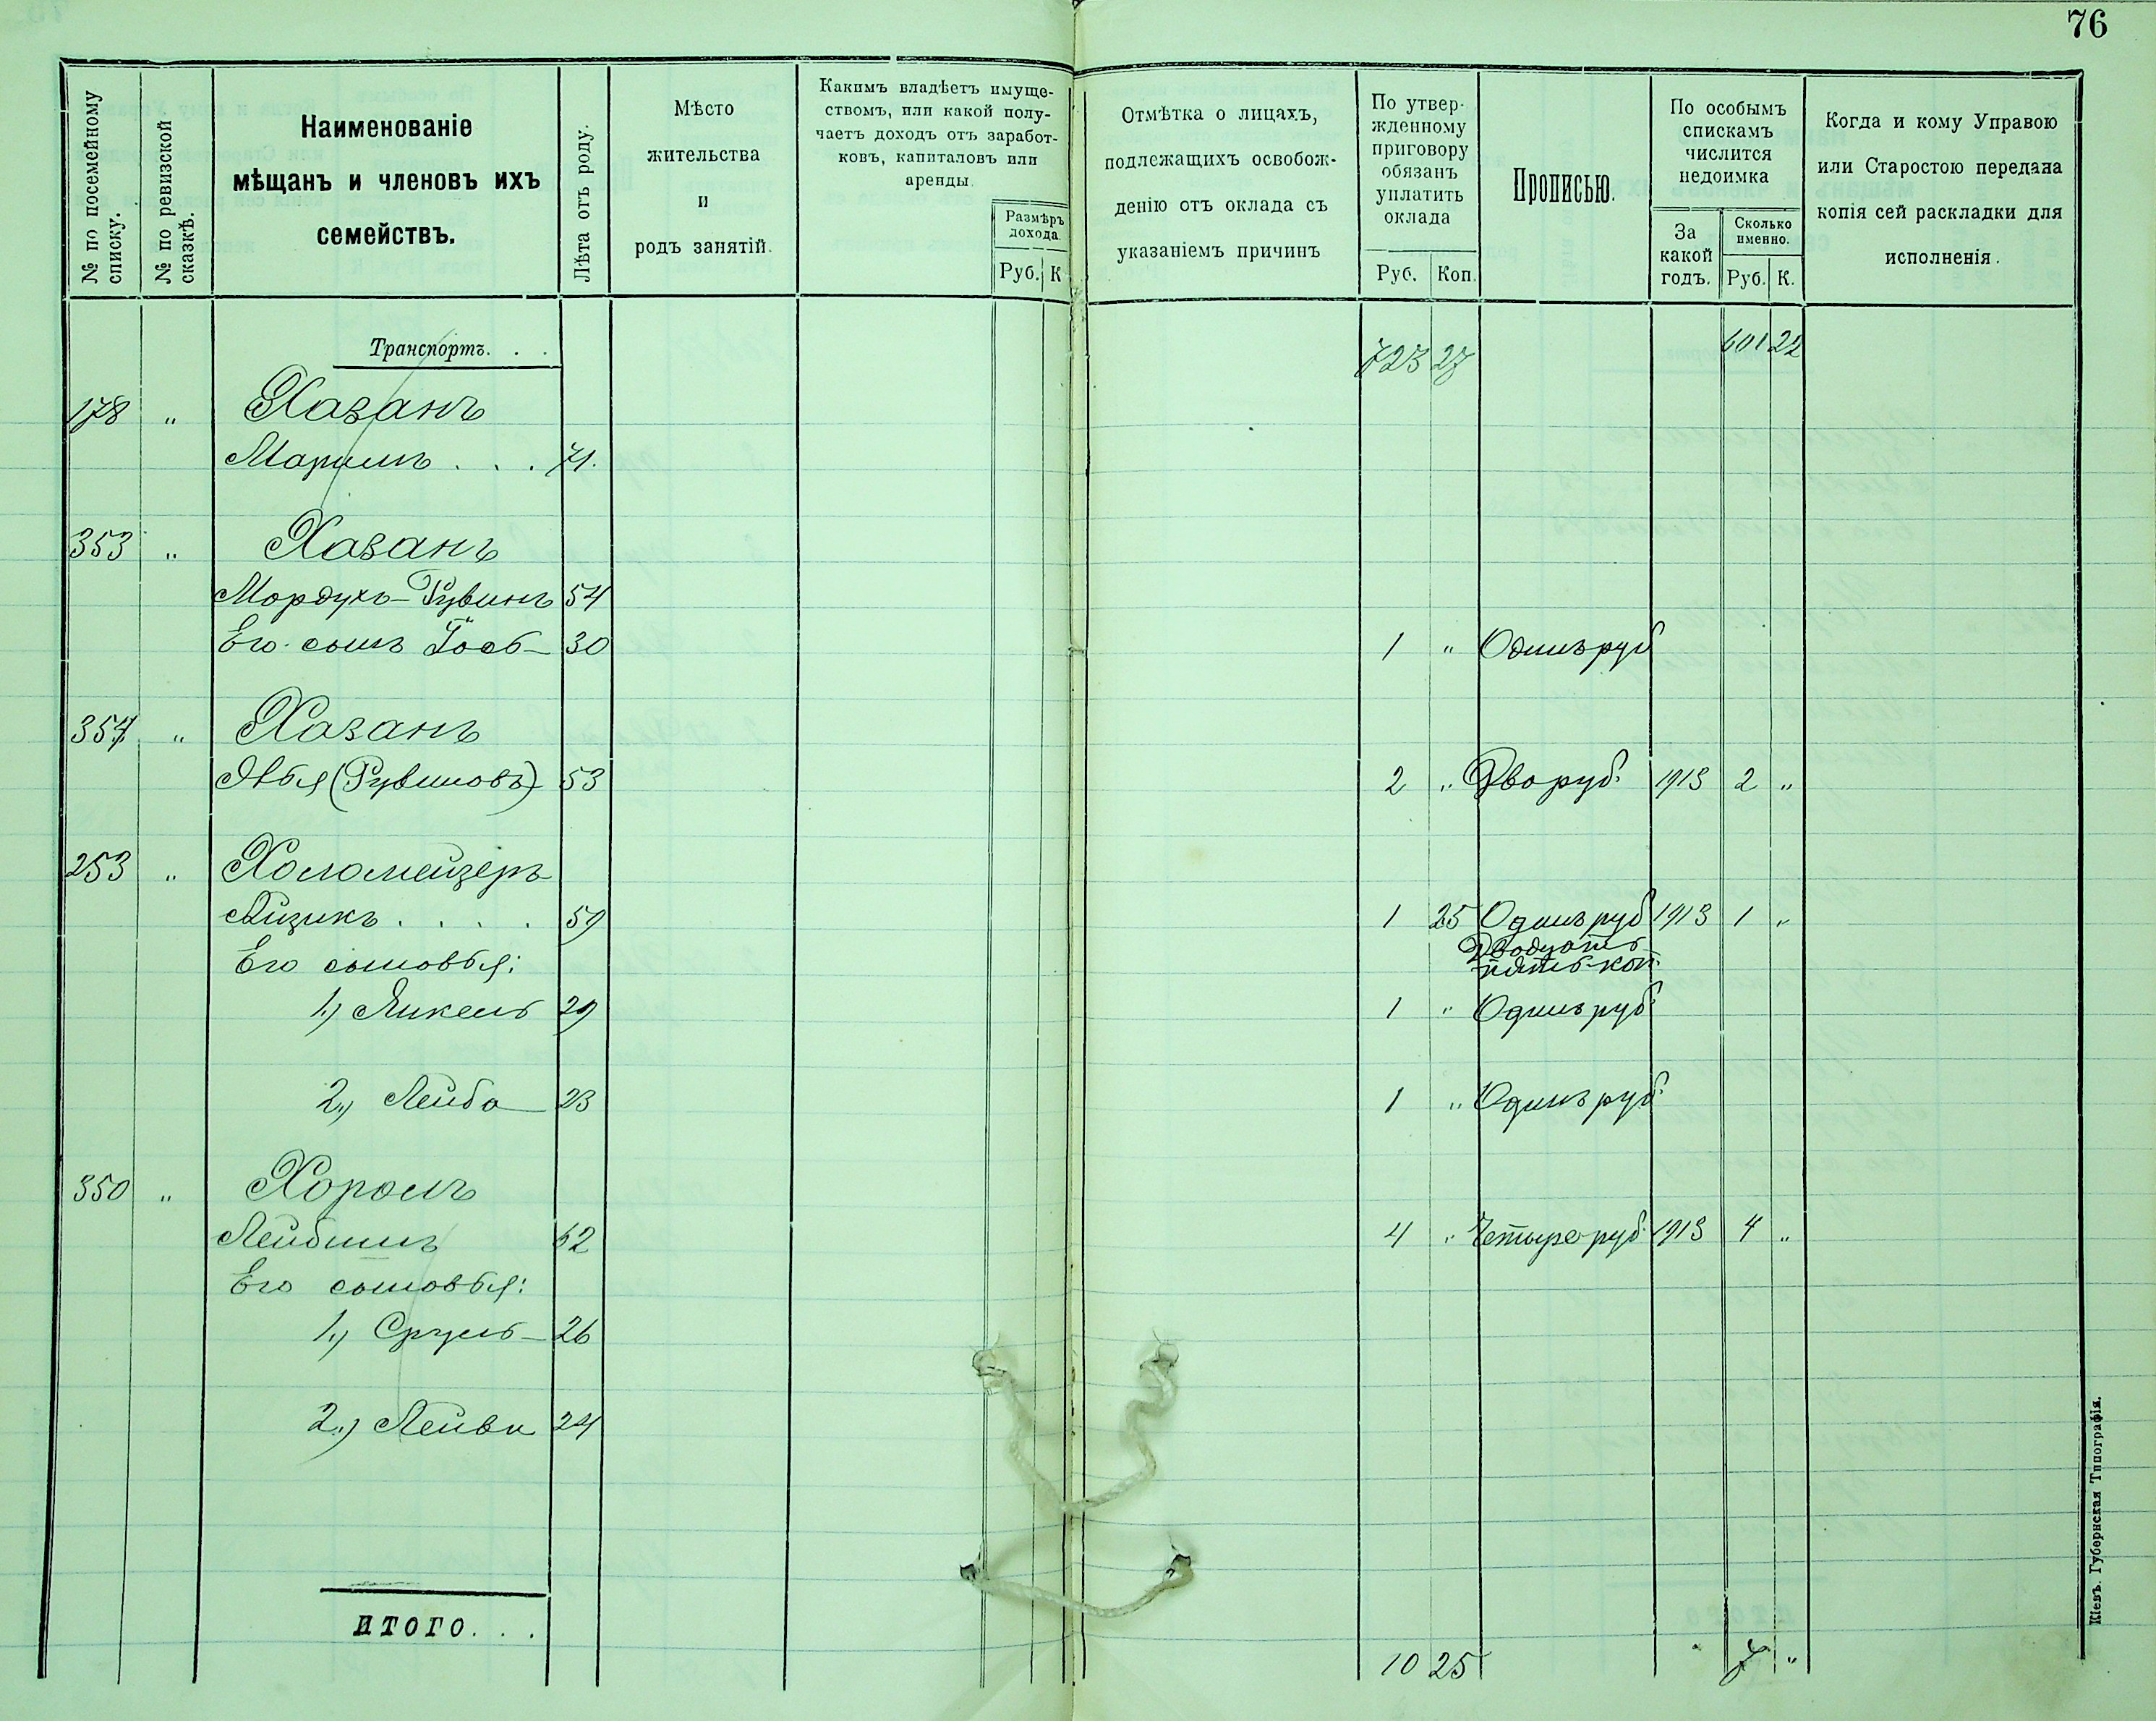 76
№ по посемейному списку.
№ по ревизской сказкѣ.
Наименованіе
мѣщанъ и членовъ ихъ
семействъ.
Лѣта отъ роду.
Мѣсто
жительства
и
родъ занятій.
Какимъ владѣетъ имуще-
ствомъ, или какой полу-
чаетъ доходъ отъ заработ-
ковъ, капиталовъ или
аренды.
Размѣръ
дохода.
Руб. К
Отмѣтка о лицахъ,
подлежащихъ освобож-
денію отъ оклада съ
указаніемъ причинъ
По утвер-
жденному
приговору
обязанъ
уплатить
оклада
Руб. Коп.
Прописью.
По особымъ
спискамъ
числится
недоимка
За
какой
годъ.
Сколько
именно.
Руб. К.
Когда и кому Управою
или Старостою передана
копія сей раскладки для
исполненія.
Транспортъ. . . 723 27 601 22
178 " Хазанъ
71.
353 " Хазанъ
Мордухъ-Рувинъ 54
Его сынъ Іось 30 1 " Одинъ руб
354 " Хазанъ
(Рувиновъ) 53 2 " Два руб. 1913 2 "
253 " Холомейзеръ
Айзикъ . . . . 59 1 25 Одинъ руб 1913 1 "
Двадцать
пять коп.
Его сыновья:
1.) Янкель 29 1 " Одинъ руб.
2.) Лейба 23 1 " Одинъ руб.
350 " Хоролъ
Лейбишъ 62 4 " Четыре руб. 1913 4 "
Его сыновья:
1.) Сруль 26
2.) Лейви 24
ИТОГО. . . 10 25 7 "
Кіевъ. Губернская Типографія.